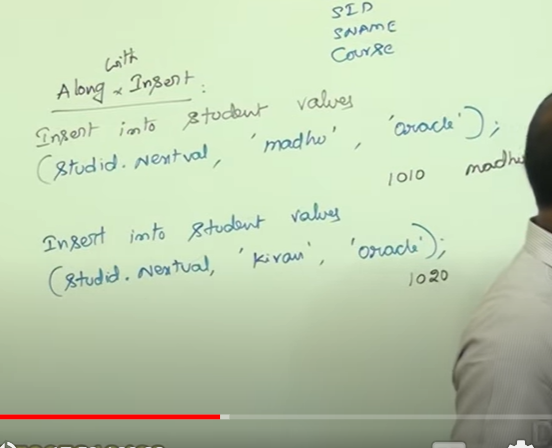 SID
SNAME
Course
with
Along x Insert :
Insert into Student values
(Studid.Nextval, 'madhu', 'oracle');
1010 madhu
Insert into Student values
(Studid.Nextval, 'kiran', 'oracle');
1020